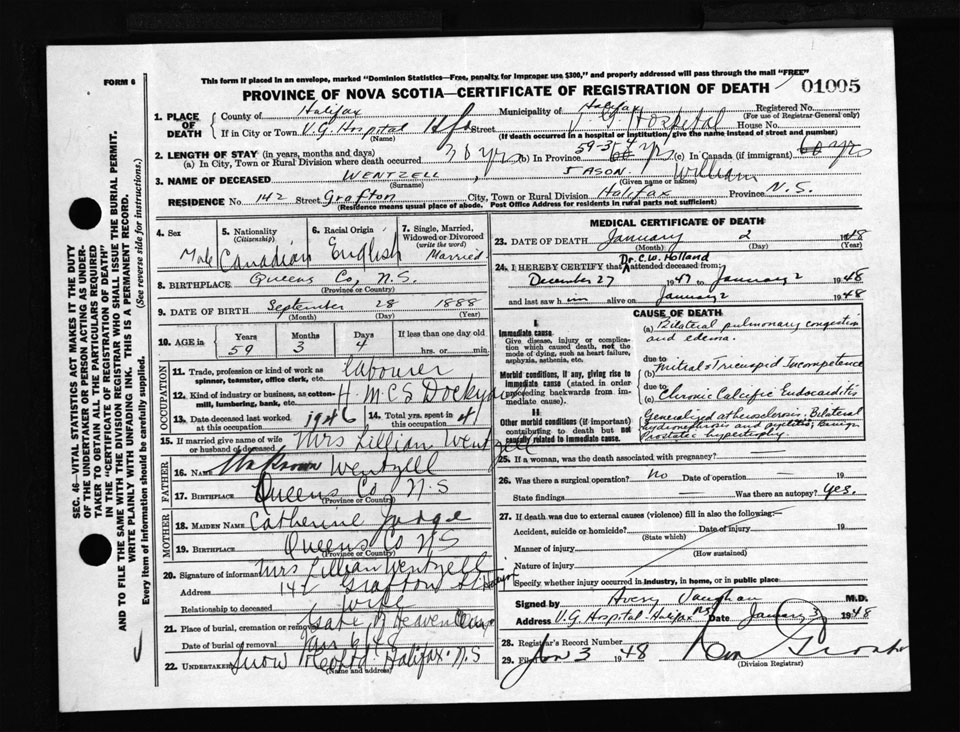 FORM 6
This form if placed in an envelope, marked "Dominion Statistics—Free, penalty for improper use $300," and properly addressed will pass through the mail "FREE"
PROVINCE OF NOVA SCOTIA—CERTIFICATE OF REGISTRATION OF DEATH 01005
1. PLACE OF DEATH
County of Halifax Municipality of Halifax Registered No.
(For use of Registrar-General only)
If in City or Town V.G. Hospital Hfx Street V.G. Hospital House No.
(Name) (If death occurred in a hospital or institution, give the name instead of street and number)
2. LENGTH OF STAY (in years, months and days)
(a) In City, Town or Rural Division where death occurred 30 yrs (b) In Province 59-3-4 60 yrs (c) In Canada (if immigrant) 60 yrs
3. NAME OF DECEASED WENTZELL, JASON. William
(Surname) (Given name or names)
RESIDENCE No. 142 Street Grafton City, Town or Rural Division Halifax Province N.S.
(Residence means usual place of abode. Post Office Address for residents in rural parts not sufficient)
4. Sex Male
5. Nationality (Citizenship) Canadian
6. Racial Origin English
7. Single, Married, Widowed or Divorced (write the word) Married
8. BIRTHPLACE Queens Co, N.S.
(Province or Country)
9. DATE OF BIRTH September 28 1888
(Month) (Day) (Year)
10. AGE in Years Months Days If less than one day old
59 3 4 hrs. or min.
OCCUPATION
11. Trade, profession or kind of work as spinner, teamster, office clerk, etc. labourer
12. Kind of industry or business, as cotton-mill, lumbering, bank, etc. H.M.C.S Dockyard
13. Date deceased last worked at this occupation 1946
14. Total yrs. spent in this occupation
15. If married give name of wife or husband of deceased Mrs Lillian Wentzell
FATHER
16. Name Unknown Wentzell
17. BIRTHPLACE Queens Co N.S
(Province or Country)
MOTHER
18. MAIDEN NAME Catherine Judge
19. BIRTHPLACE Queens Co N.S
(Province or Country)
20. Signature of informant Mrs Lillian Wentzell
Address 142 Grafton St Halifax
Relationship to deceased wife
21. Place of burial, cremation or removal Gate of Heaven
Date of burial or removal Jan 6/48
22. Undertaker Snow Halifax N.S
(Name and address)
MEDICAL CERTIFICATE OF DEATH
23. DATE OF DEATH January 2 1948
(Month) (Day) (Year)
Dr. C.W. Holland
24. I HEREBY CERTIFY that attended deceased from:
December 27 1947 to January 2 1948
and last saw him alive on January 2 1948
CAUSE OF DEATH
I.
Immediate cause
Give disease, injury or complication which caused death, not the mode of dying, such as heart failure, asphyxia, asthenia, etc.
(a) Bilateral pulmonary congestion and edema.
Morbid conditions, if any, giving rise to immediate cause (stated in order proceeding backwards from immediate cause).
due to
(b) Mitral & Tricuspid Incompetence
due to
(c) Chronic Calcific Endocarditis
II.
Other morbid conditions (if important) contributing to death but not causally related to immediate cause.
Generalized atherosclerosis. Bilateral hydronephrosis and pyelitis; Benign Prostatic hypertrophy.
25. If a woman, was the death associated with pregnancy? —
26. Was there a surgical operation? No Date of operation — 19
State findings — Was there an autopsy? Yes.
27. If death was due to external causes (violence) fill in also the following:—
Accident, suicide or homicide? Date of injury 19
(State which)
Manner of injury
(How sustained)
Nature of injury
Specify whether injury occurred in industry, in home, or in public place
Signed by Avery Vaughan M.D.
Address V.G. Hospital Halifax NS Date January 3 1948
28. Registrar's Record Number
29. Filed Jan 3 1948
(Division Registrar)
SEC. 46—VITAL STATISTICS ACT MAKES IT THE DUTY
OF THE UNDERTAKER OR PERSON ACTING AS UNDER-
TAKER TO OBTAIN ALL THE PARTICULARS REQUIRED
IN THE "CERTIFICATE OF REGISTRATION OF DEATH"
AND TO FILE THE SAME WITH THE DIVISION REGISTRAR WHO SHALL ISSUE THE BURIAL PERMIT.
WRITE PLAINLY WITH UNFADING INK. THIS IS A PERMANENT RECORD.
Every item of information should be carefully supplied. (See reverse side for instructions.)